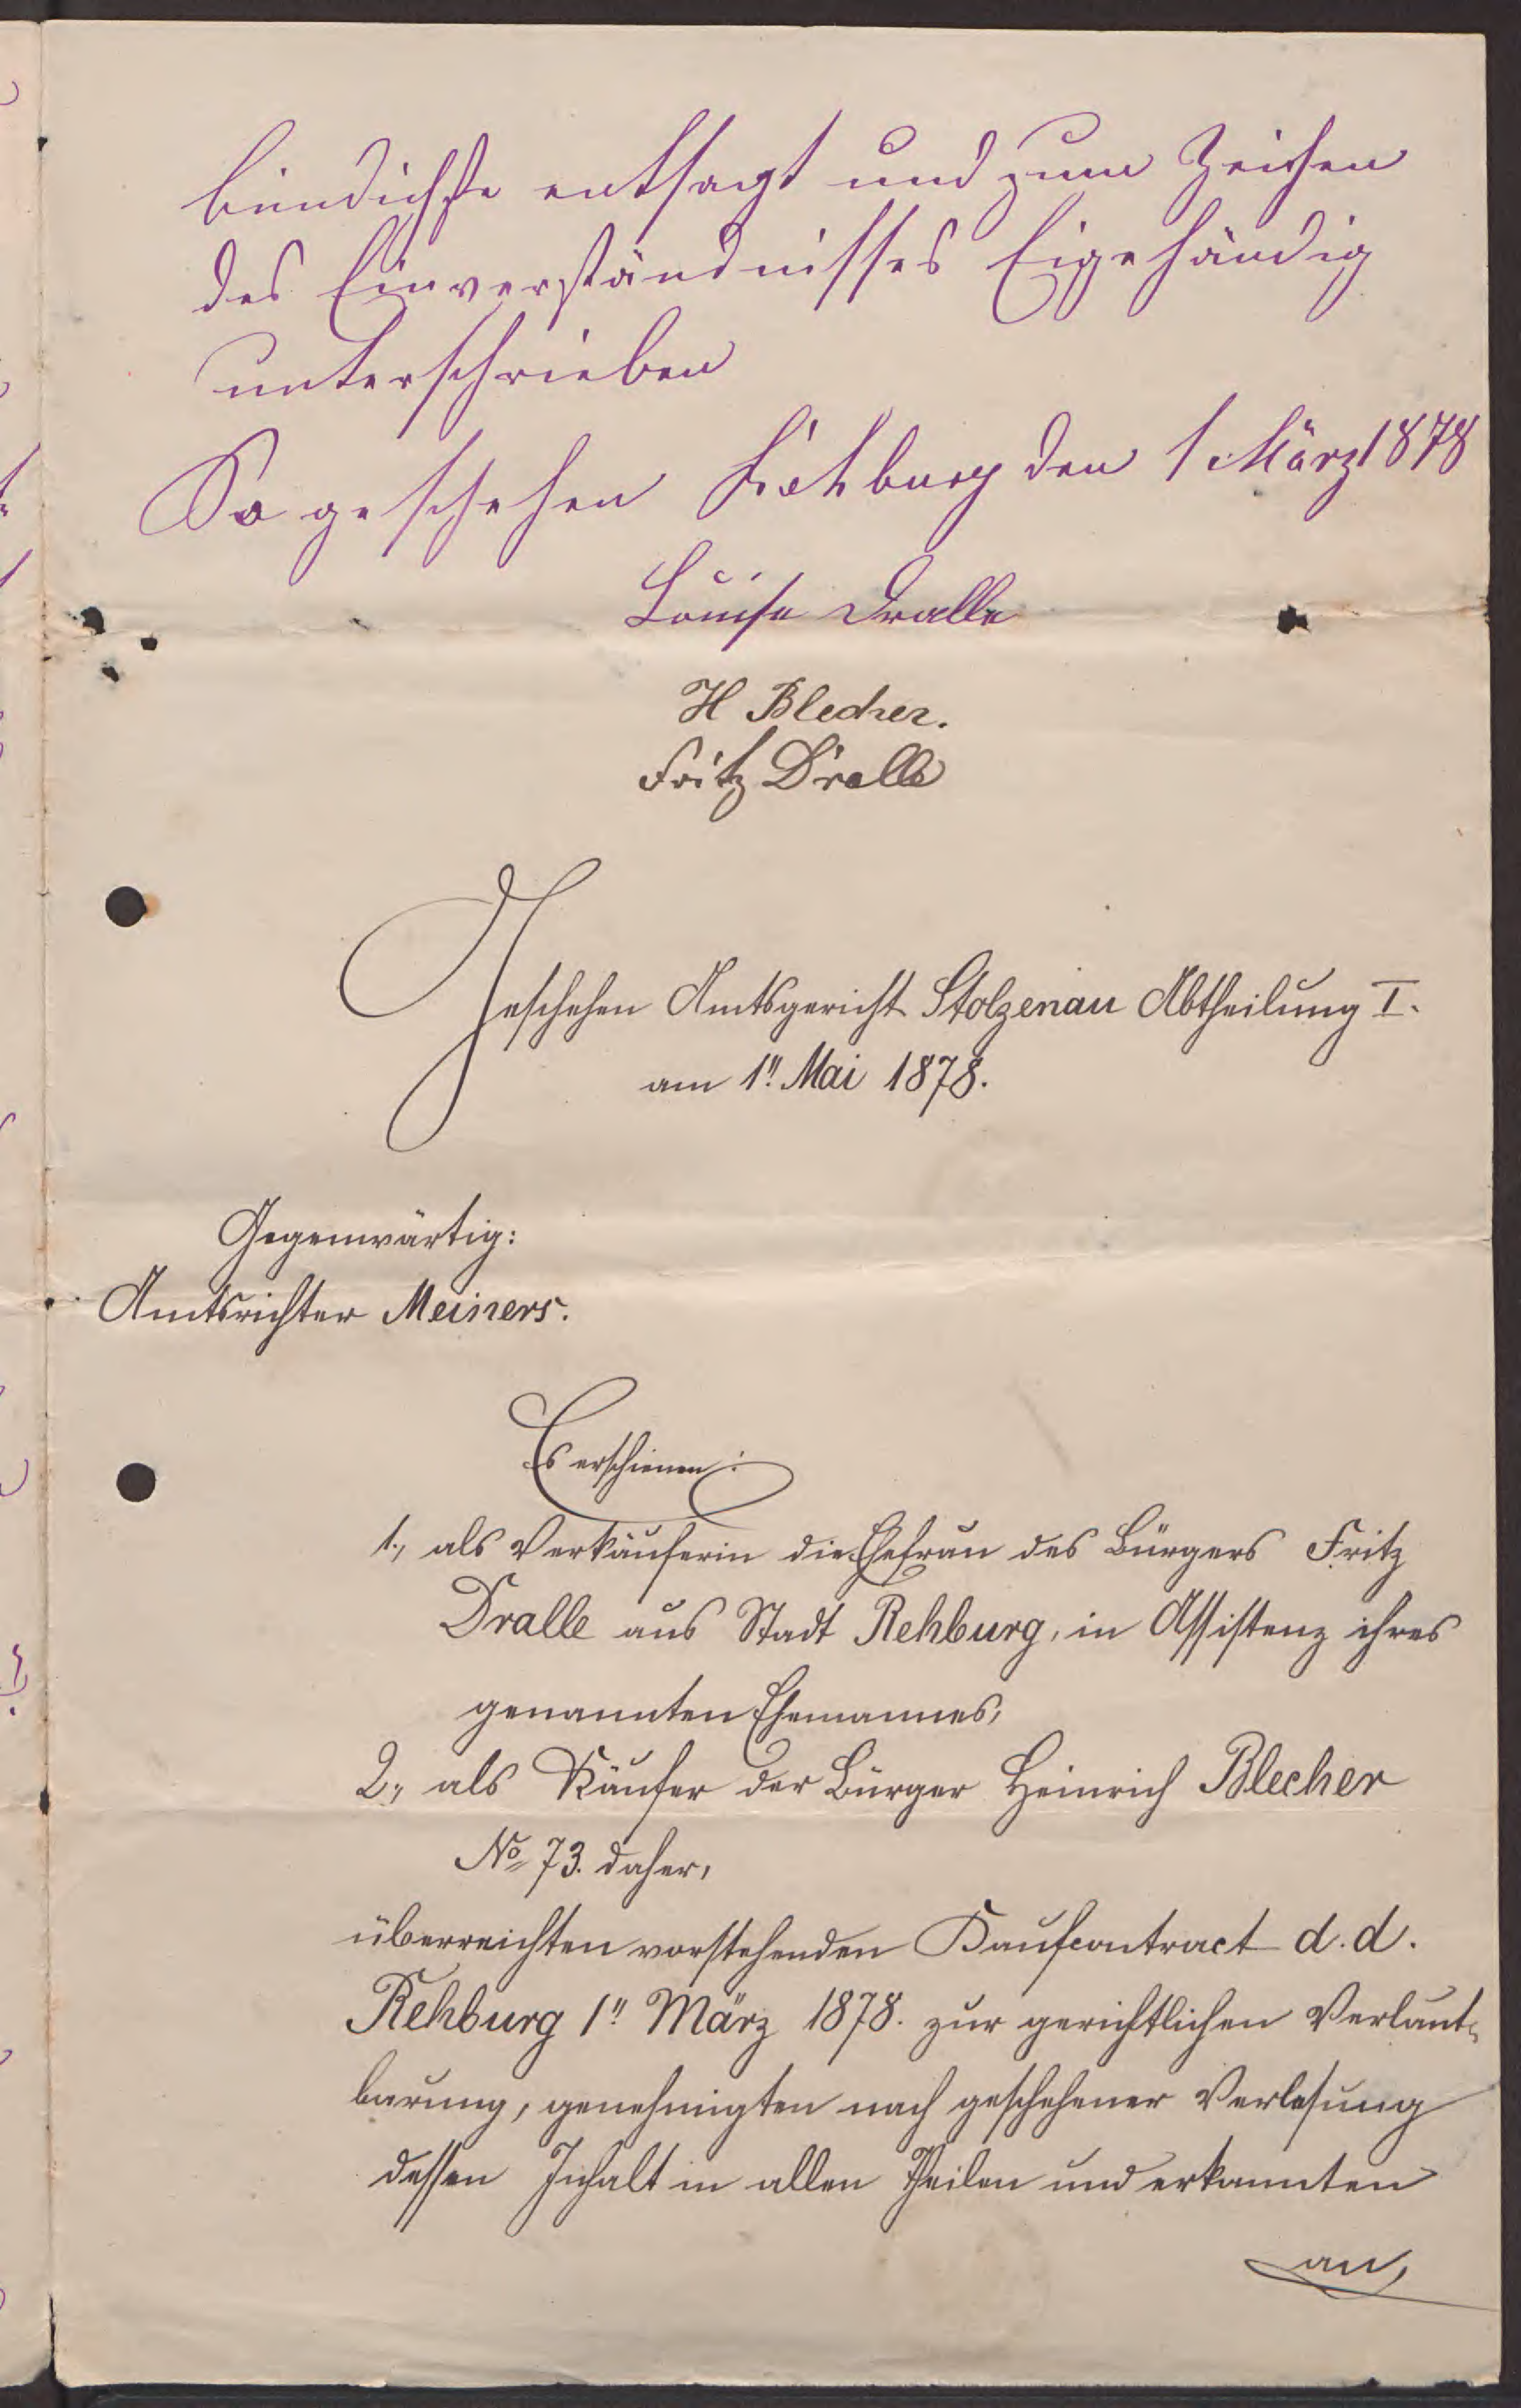 bündichste entsagt und zum Zeichen
des Einverständnisses Eigehändig
unterschrieben
So geschehen Rehburg den 1 März 1878
Louise Dralle
H Blecher.
Fritz Dralle
Geschehen Amtsgericht Stolzenau Abtheilung I.
am 1'' Mai 1878.
Gegenwärtig:
Amtsrichter Meiners.
Es erschienen:
1., als Verkäuferin die Ehefrau des Bürgers Fritz
Dralle aus Stadt Rehburg, in Assistenz ihres
genannten Ehemannes,
2., als Käufer der Bürger Heinrich Blecher
No 73. daher,
überreichten vorstehenden Kaufcontract d.d.
Rehburg 1'' März 1878. zur gerichtlichen Verlaut-
barung, genehmigten nach geschehener Verlesung
dessen Inhalt in allen Theilen und erkannten
an,